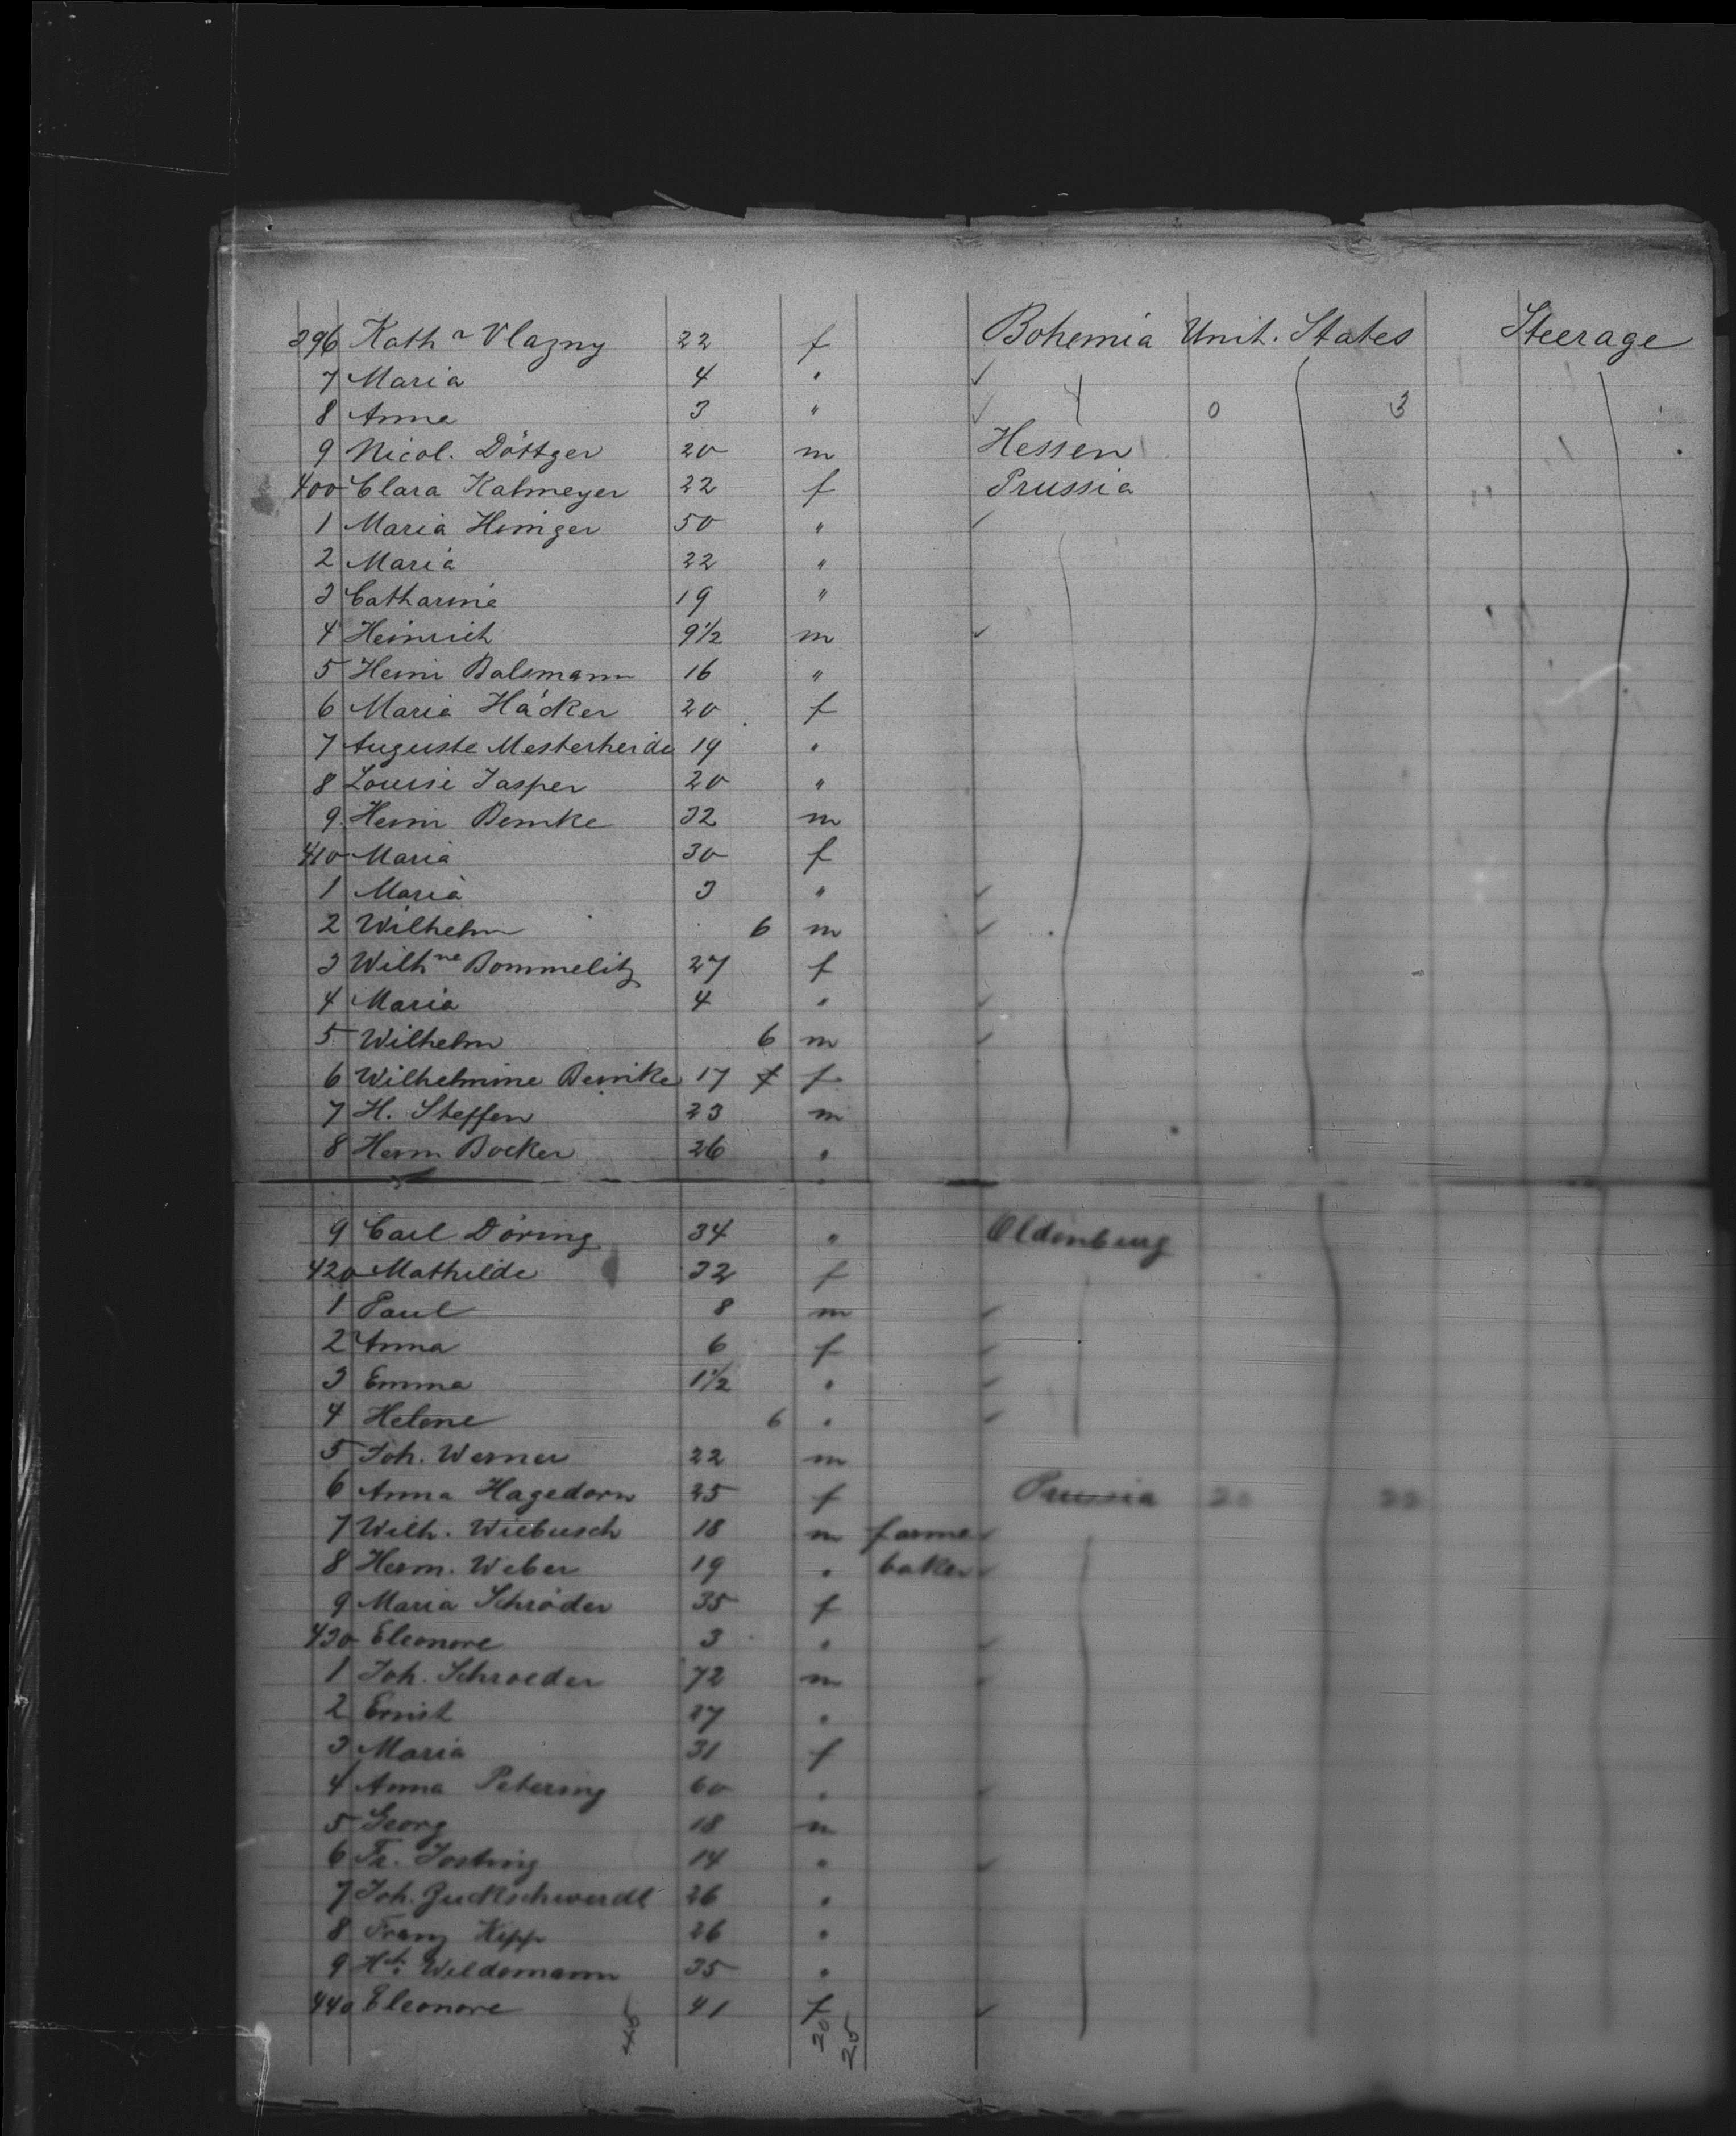 396 Kath a Vlazny 22 f Bohemia Unit. States Steerage
7 Maria 4 "
8 Anna 3 " 4 0 3
9 Nicol. Döttger 20 m Hessen
400 Clara Katmeyer 22 f Prussia
1 Maria Heiniger 50 "
2 Maria 22 "
3 Catharine 19 "
4 Heinrich 9 1/2 m
5 Heinr Balsmann 16 "
6 Maria Häcker 20 f
7 Auguste Mesterheide 19 "
8 Louise Jasper 20 "
9 Heinr Bemke 32 m
410 Maria 30 f
1 Maria 3 "
2 Wilhelm 6 m
3 Wilh ne Bommelitz 27 f
4 Maria 4 "
5 Wilhelm 6 m
6 Wilhelmine Bemke 17 f f
7 H. Steffen 23 m
8 Herm Bocker 26 "
9 Carl Döring 34 " Oldenburg
420 Mathilde 32 f
1 Paul 8 m
2 Anna 6 f
3 Emma 1 1/2 "
4 Helene 6 "
5 Joh. Werner 22 m
6 Anna Hagedorn 25 f Prussia 20 22
7 Wilh. Wiebusch 18 m farmer
8 Herm. Weber 19 " baker
9 Maria Schröder 35 f
430 Eleonore 3 "
1 Joh. Schroeder 72 m
2 Ernst 27 "
3 Maria 31 f
4 Anna Petering 60 "
5 Georg 18 m
6 Fr. Josting 14 "
7 Joh. Zuckschwerdt 26 "
8 Franz Kipp 26 "
9 Hch: Wildemann 35 "
440 Eleonore 41 f
45 20 25